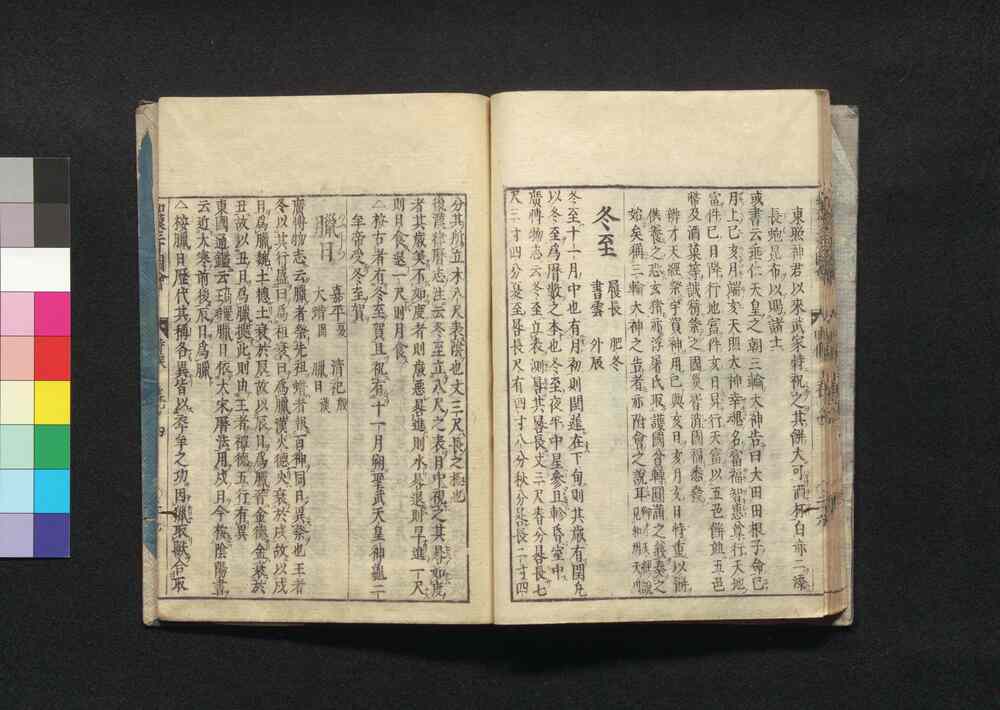 東照神君以來武家特祝之其餅大可両杯白赤二濃
長鮑昆布以賜諸士
或書云垂仁天皇之朝三輪大神告曰大田田根子命已
月上已亥月端亥天照大神幸魂名富福智惠尊行天地
當件已日降行也當件亥日昇行天當以五色餅䱋五色
幣及酒菓等誠禱祭之國災皆消國福悉發
辨才天經祭宇賀神用已與亥日亥月亥日特重以辦
供養之恐玄猪祈浮屠氏取護國會轉圓滿之義奏之
始矣稱三輪大神之告者亦附會之說耳
冬至
晷長 肥冬
書雲 外辰
冬至十一月中也有月初則閏莚在下旬則其歲有閏凡
以冬至爲暦數之本冬至夜半中星參且軫昏室中
廣博物志云冬至立表測晷其晷長丈三尺春分晷長七
尺三寸四分夏至晷長尺有四寸八分秋分晷長
分其所立木八尺表陰也丈三尺長之極也
後漢律暦志注云冬至立八尺之表日中視之其晷如度
者其歲美不如度者則歲惡晷進則水晷退則旱進一尺
則日食退一尺則月食
△按古者有冬至賀且祝有十一月朔聖武天皇神龜二
年帝受冬至賀
臘日
嘉平夏 清祀殷
大蜡周 臘日漢
廣博物志云臘者祭先祖蜡者報百神同日異祭也王者
冬以其行盛日爲祖衰日爲臘漢火德火衰於戌故以戌
日爲臘魏土德土衰於辰故以辰日爲臘晉金德金衰於
丑故以丑日爲臘據此則由王者禪德五行有異
東國通鑑云 臘日依大宋曆法用戌日今按陰陽書
云近大寒前後辰日爲臘
△按臘日歷代其稱各異皆以祭年之功因獵取獸合取